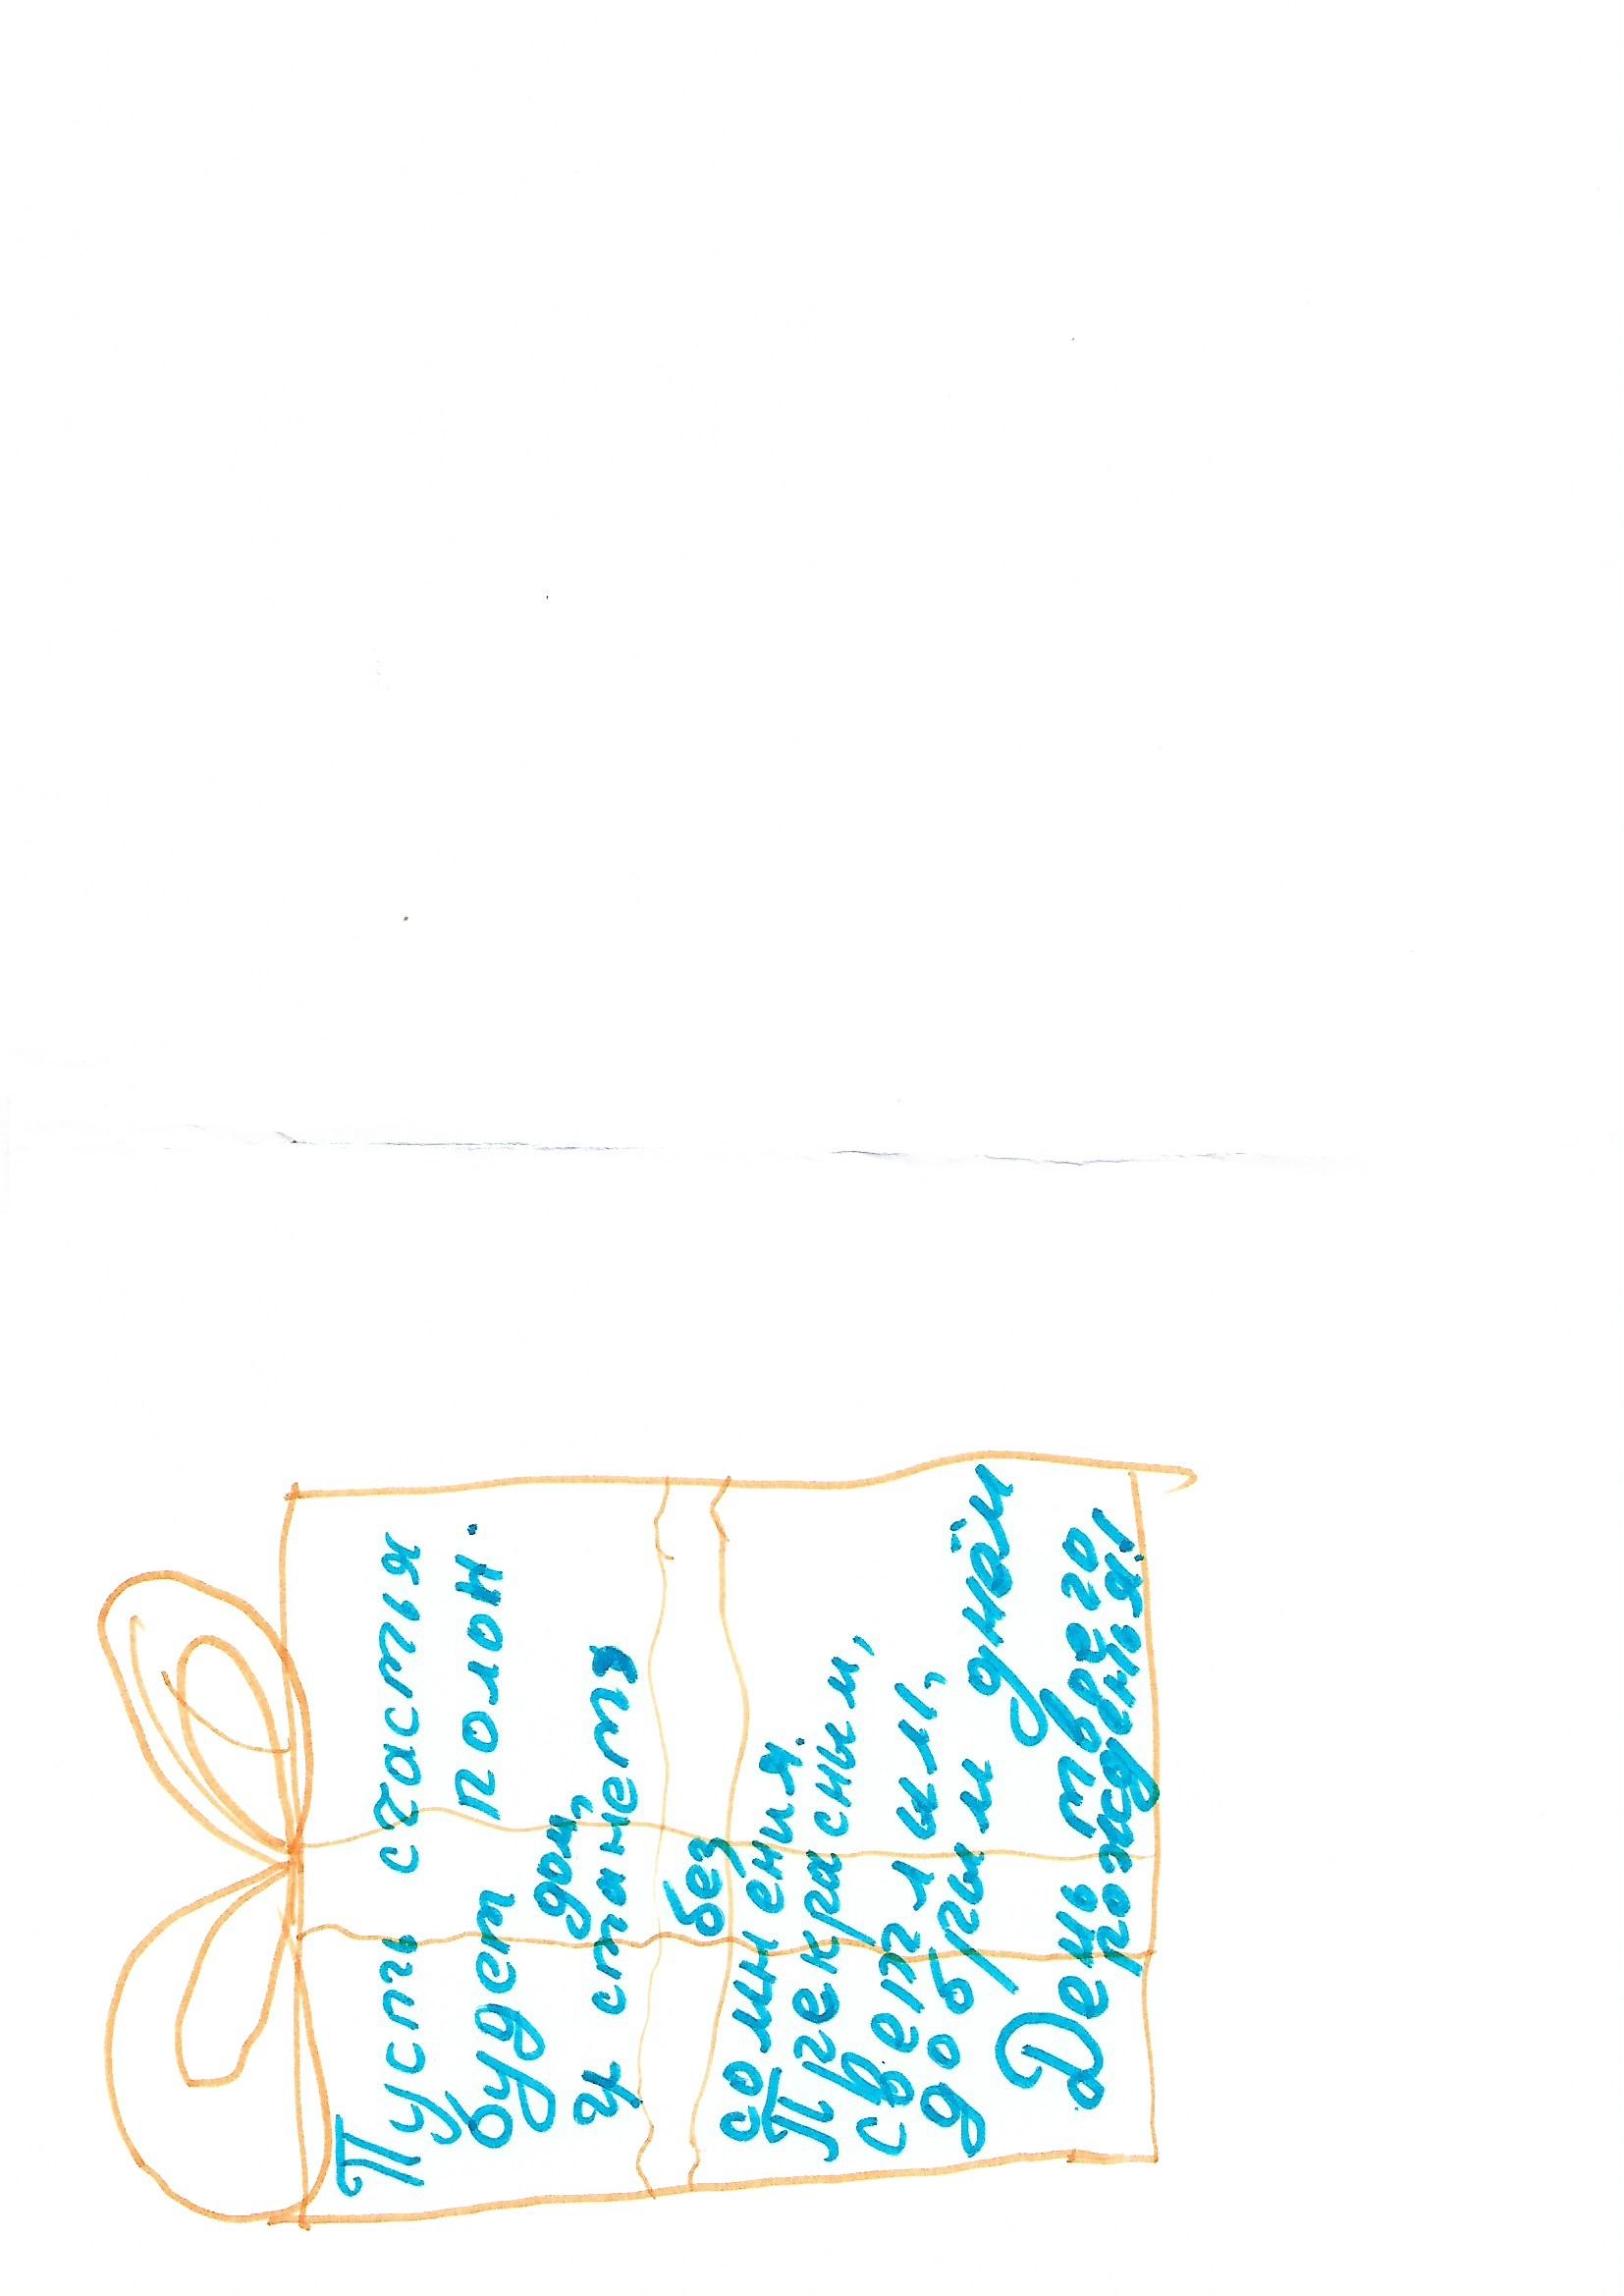 Пусть счастья
будет полон
дом,
И станет
без
сомнения.
Прекрасным,
светлым,
добрым днём
День твоего
рожденья!